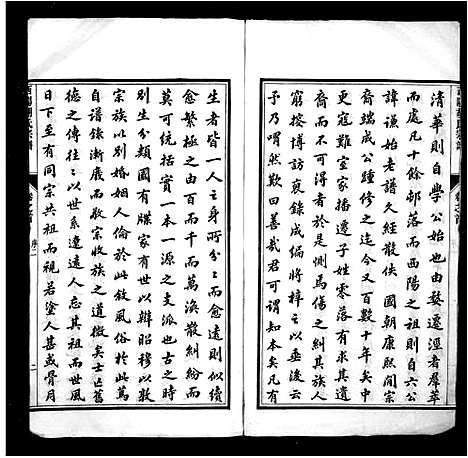 清華則自學公始也由婺遷涇者羣萃
而處凡十餘邨落而西陽之祖則自六公
諱謙始老譜久經散佚國朝康熙間宗
裔端成公踵修之迄今又數十年矣中
更寇難室家播遷子姓零落有求其遺
裔而不可得者於是惻焉傷之糾其族人
窮搜博訪裒錄成編將梓之以垂後云
予乃喟然歎曰善哉君可謂知本矣凡有
生者皆一人之身所分二而愈遠則似續
愈繁極之由百而千而萬渙散糾紛而
莫可統括實一本一源之支派也古之時
別生分類國有牒家有世以辨昭穆以敦
宗族以別婚姻人倫於此敘風俗於此篤
自譜錄漸廢而敦宗收族之道微矣士亡舊
德之傳往二以世系遼遠人忘其祖而世風
日下至有同宗共祖而視若塗人甚或骨月
序一
二